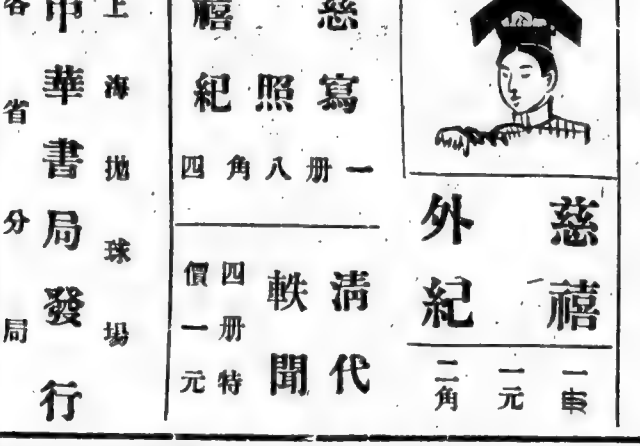 慈禧
外紀
一
一元
二角
慈寫
照
禧紀
一册八角四
清代
軼聞
四册特
價一元
上海拋球場
中華書局發行
各省分局